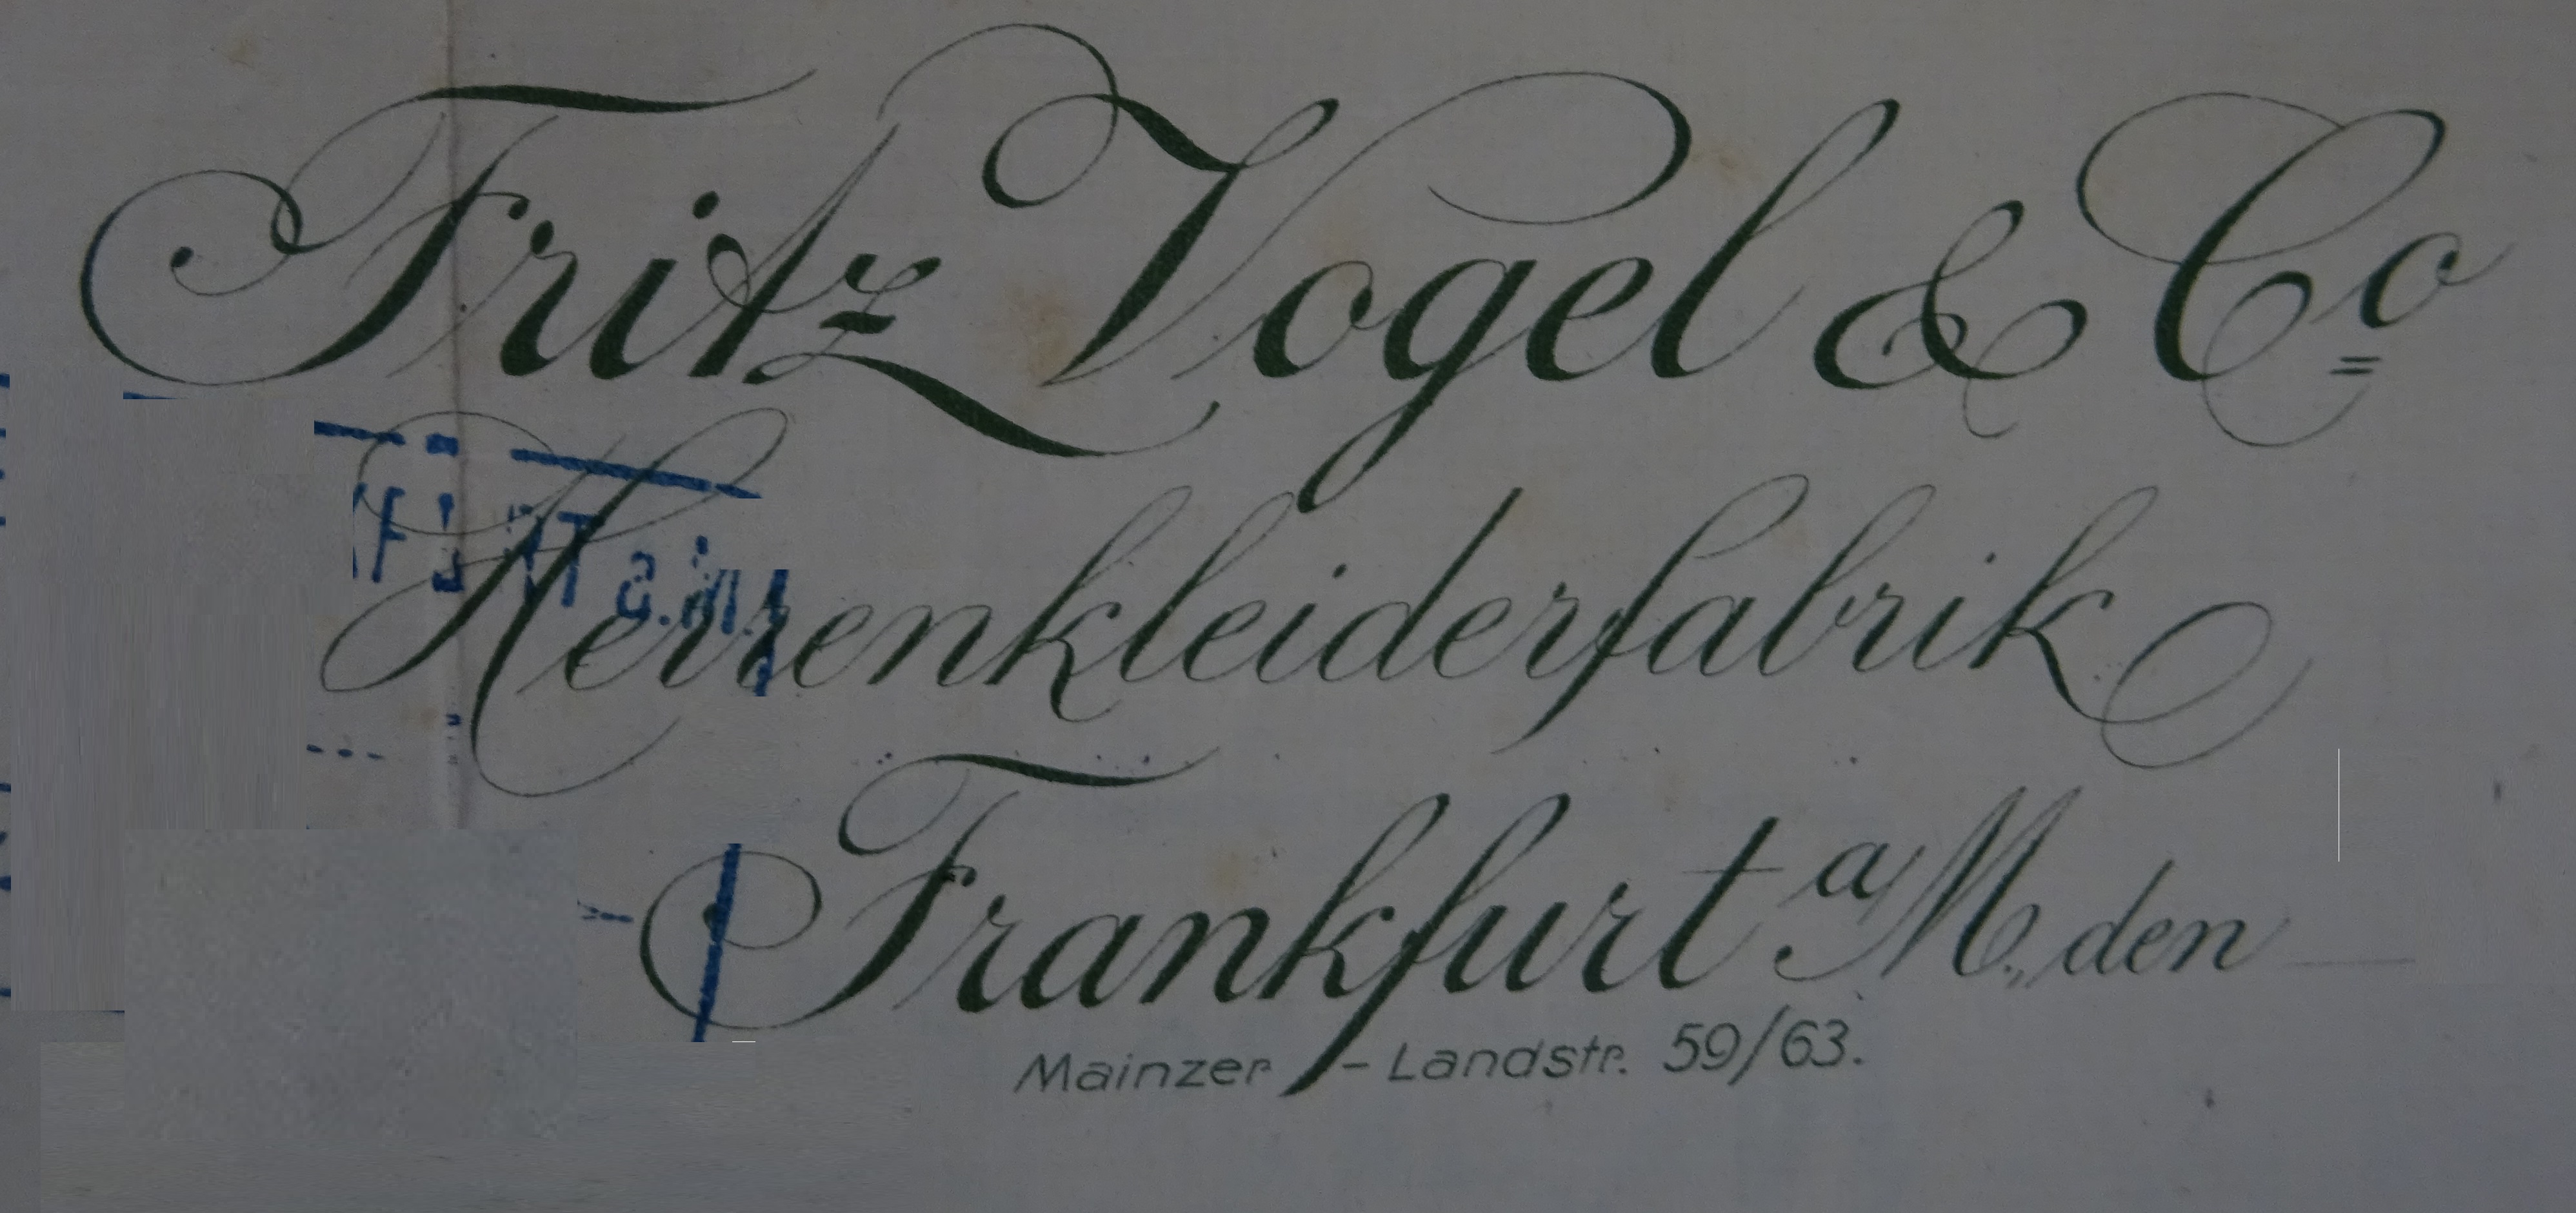 Fritz Vogel & Co
Herrenkleiderfabrik
Frankfurt a/M., den
Mainzer-Landstr. 59/63.